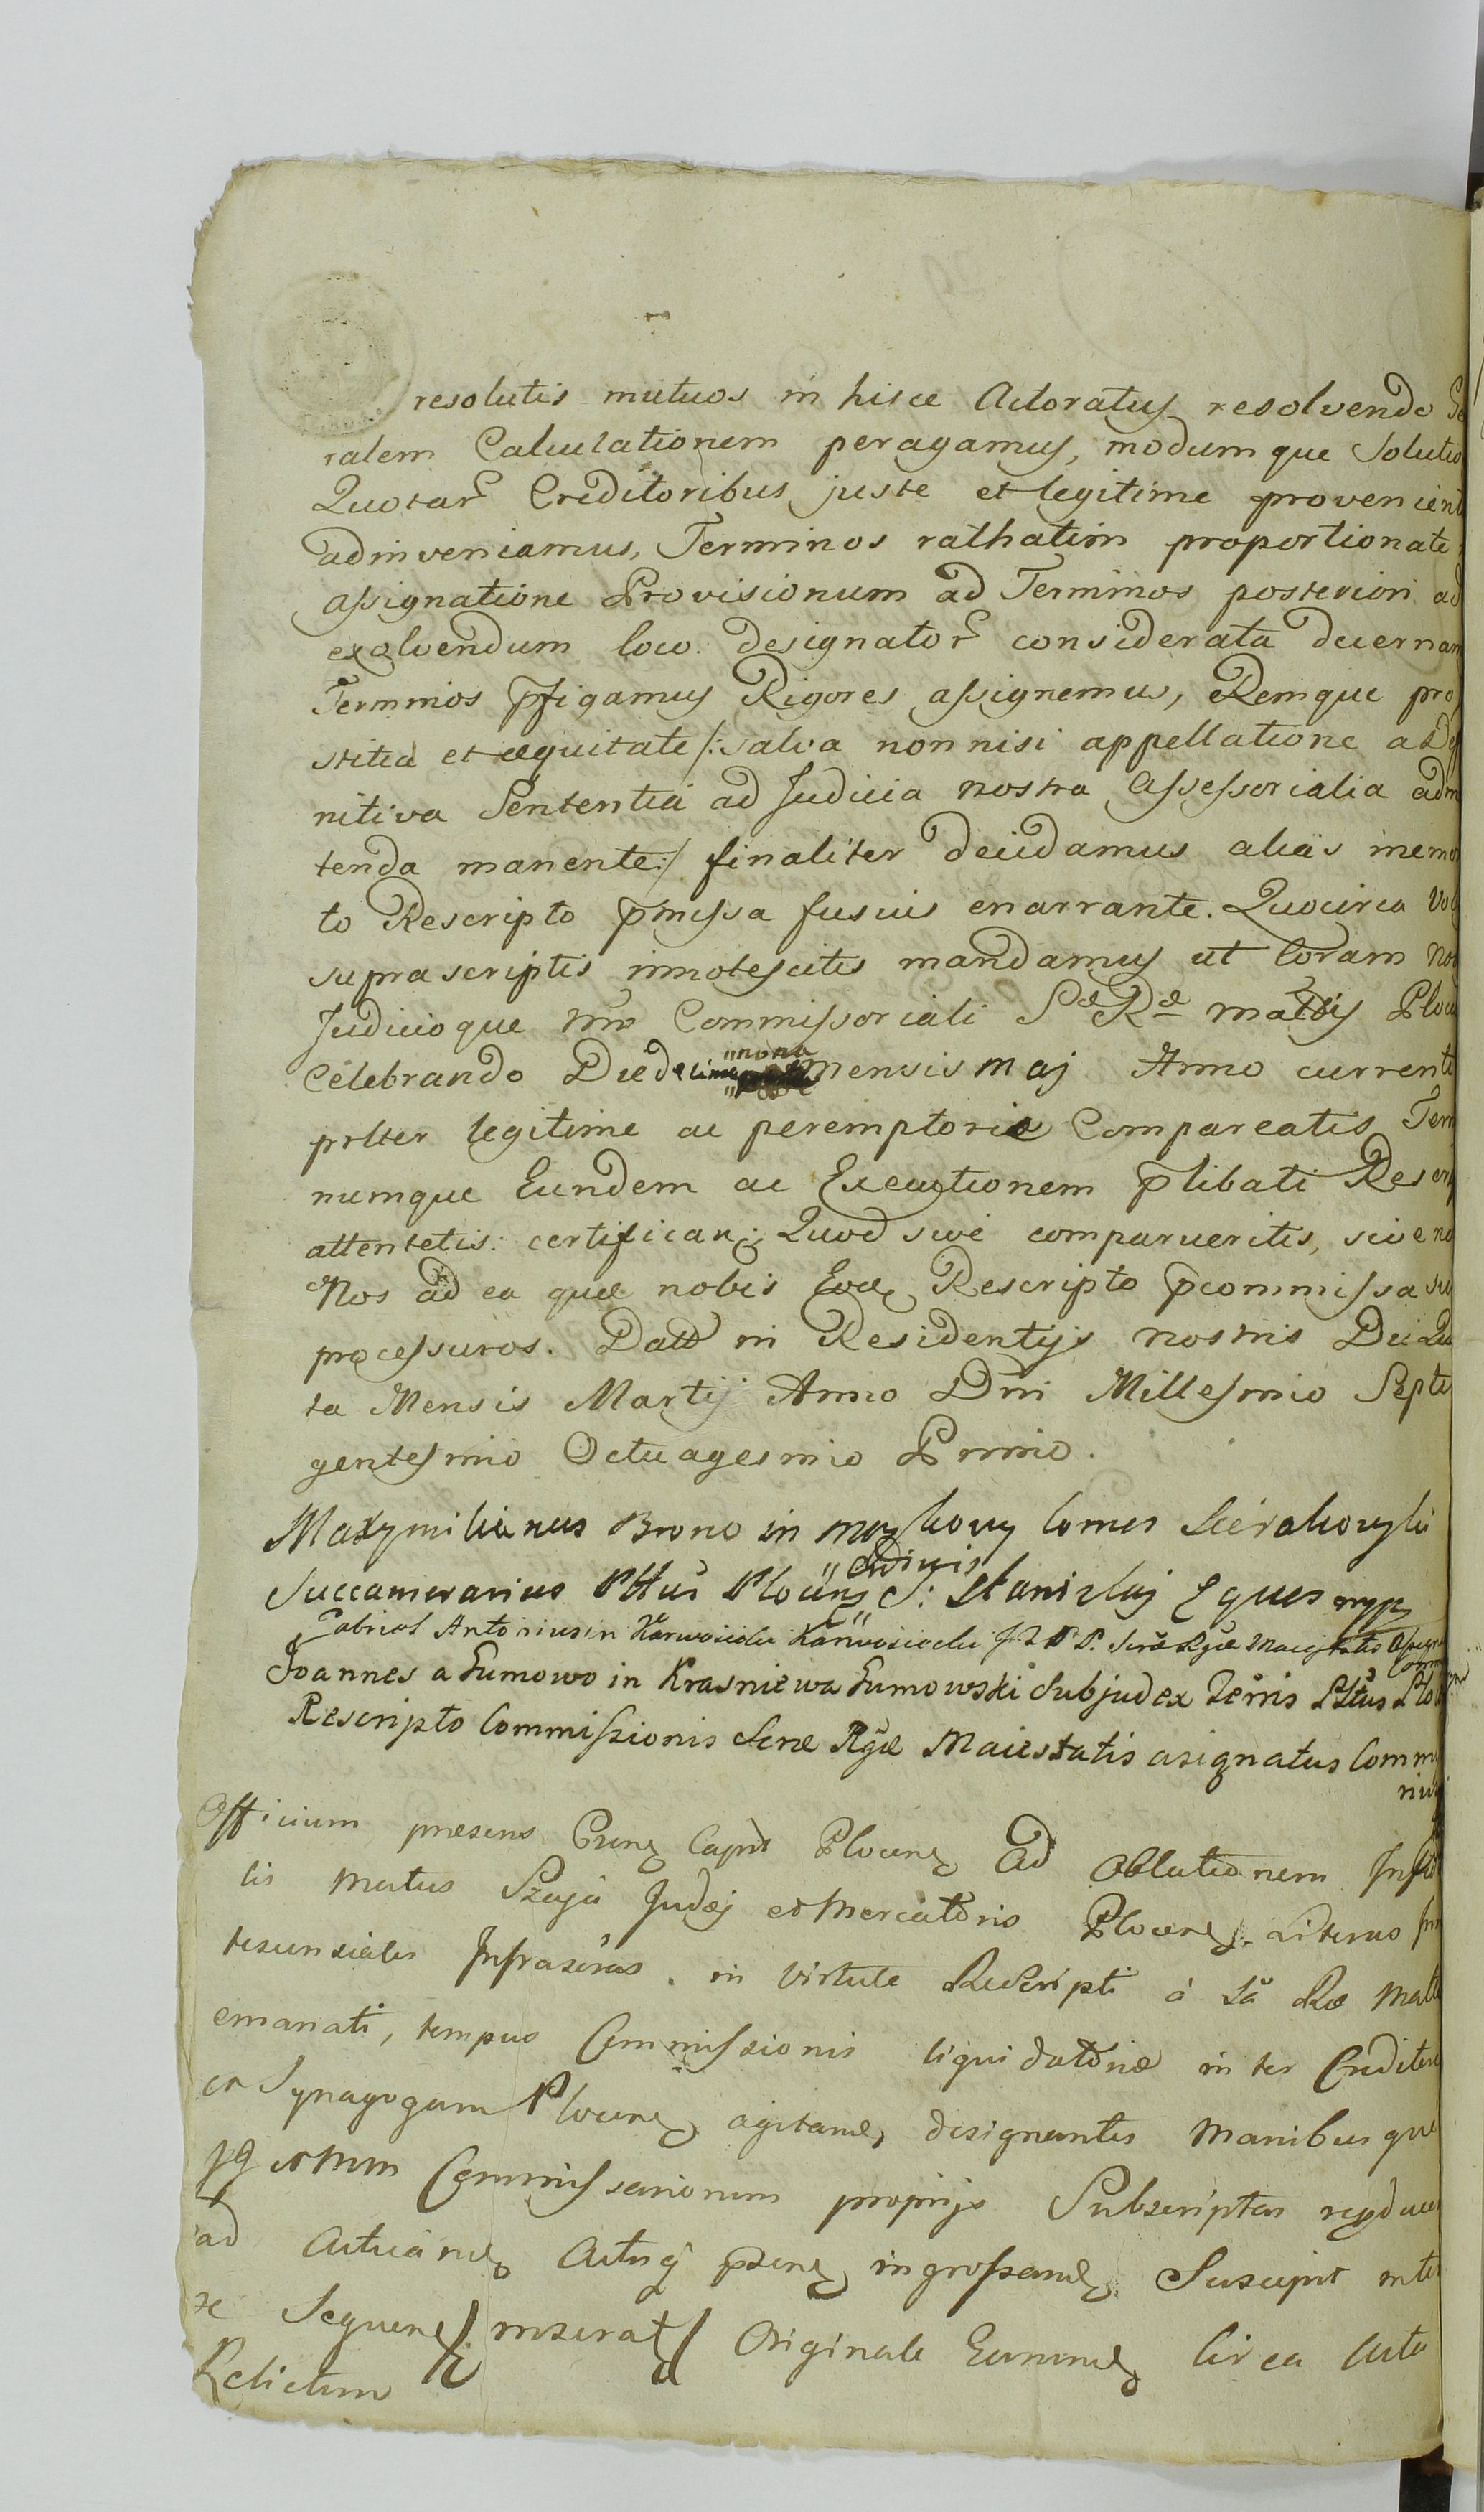 resolutis mutuos in hisce Actoratus resolvendo Ge
ralem Calculationem peragamus, modumque Solutio
Quotar Creditoribus juste et legitime provenient
adinveniamus, Terminos rathatim proportionate
assignatione Provisionum ad Terminos posteriori ad
exolvendum loco designator considerata decernam
Terminos pfigamus Rigores assignemus, Remque pro
stitia et æquitate /: salva non nisi appellatione a Def
nitiva Sententia ad Judicia nostra Assessorialia adm
tenda manente :/ finaliter decidamus alias memo
to Rescripto pmissa fusius enarrante. Quocirca Vob
suprascriptis innotescitis mandamus ut Coram Nob
Judicioque nro Commissoriali Sæ Ræ mattis Ploce
Celebrando Die decima nona mensis maj Anno current
prlter legitime ac peremptorie Compareatis Term
numque Eundem ac Executionem plibati Rescrip
attentetis: certifican; Quod sive comparueritis, sive no
Nos ad ea quæ nobis Eod Rescripto pcommissa su
processuros. Datt in Residentijs nostris Die Qu
ta Mensis Martij Anno Dni Millesimo Septi
gentesimo Octuagesimo Primo.
Maxymilianus Brono in Comes Sierakowski
Succamerarius Pttus Plocens ordinis S: Stanislaj Eques mpp
Gabriel Antonius in Karwosieki Karwosiecki J P P. Sræ Rgiæ Maiestatis Assigna
Comm
Joannes a Łumowo in Krasniewa Łumowski Subjudex Terris Pttus Plo
Rescripto Commissionis Scræ Rgiæ Maiestatis asignatus Comm
rius
Officium præsens Crense Captr Plocens Ad Oblationem Infid
lis Martus Szaja Judæj et Mercatoris Plocens. Literas Inn
tescentiales Infrascras. in Virtute Rescripti à Sa Ræ Matt
emanati, tempus Commissionis liquidatoriæ inter Creditor
et Synagogam Plocens agitand, designantes Manibusque
et Mm Commissariorum proprijs Subscriptas
ad Acticand Actisq psens ingrossand Suscepit
se Sequen inserat Originale Eorund Circa Acta
Relictum